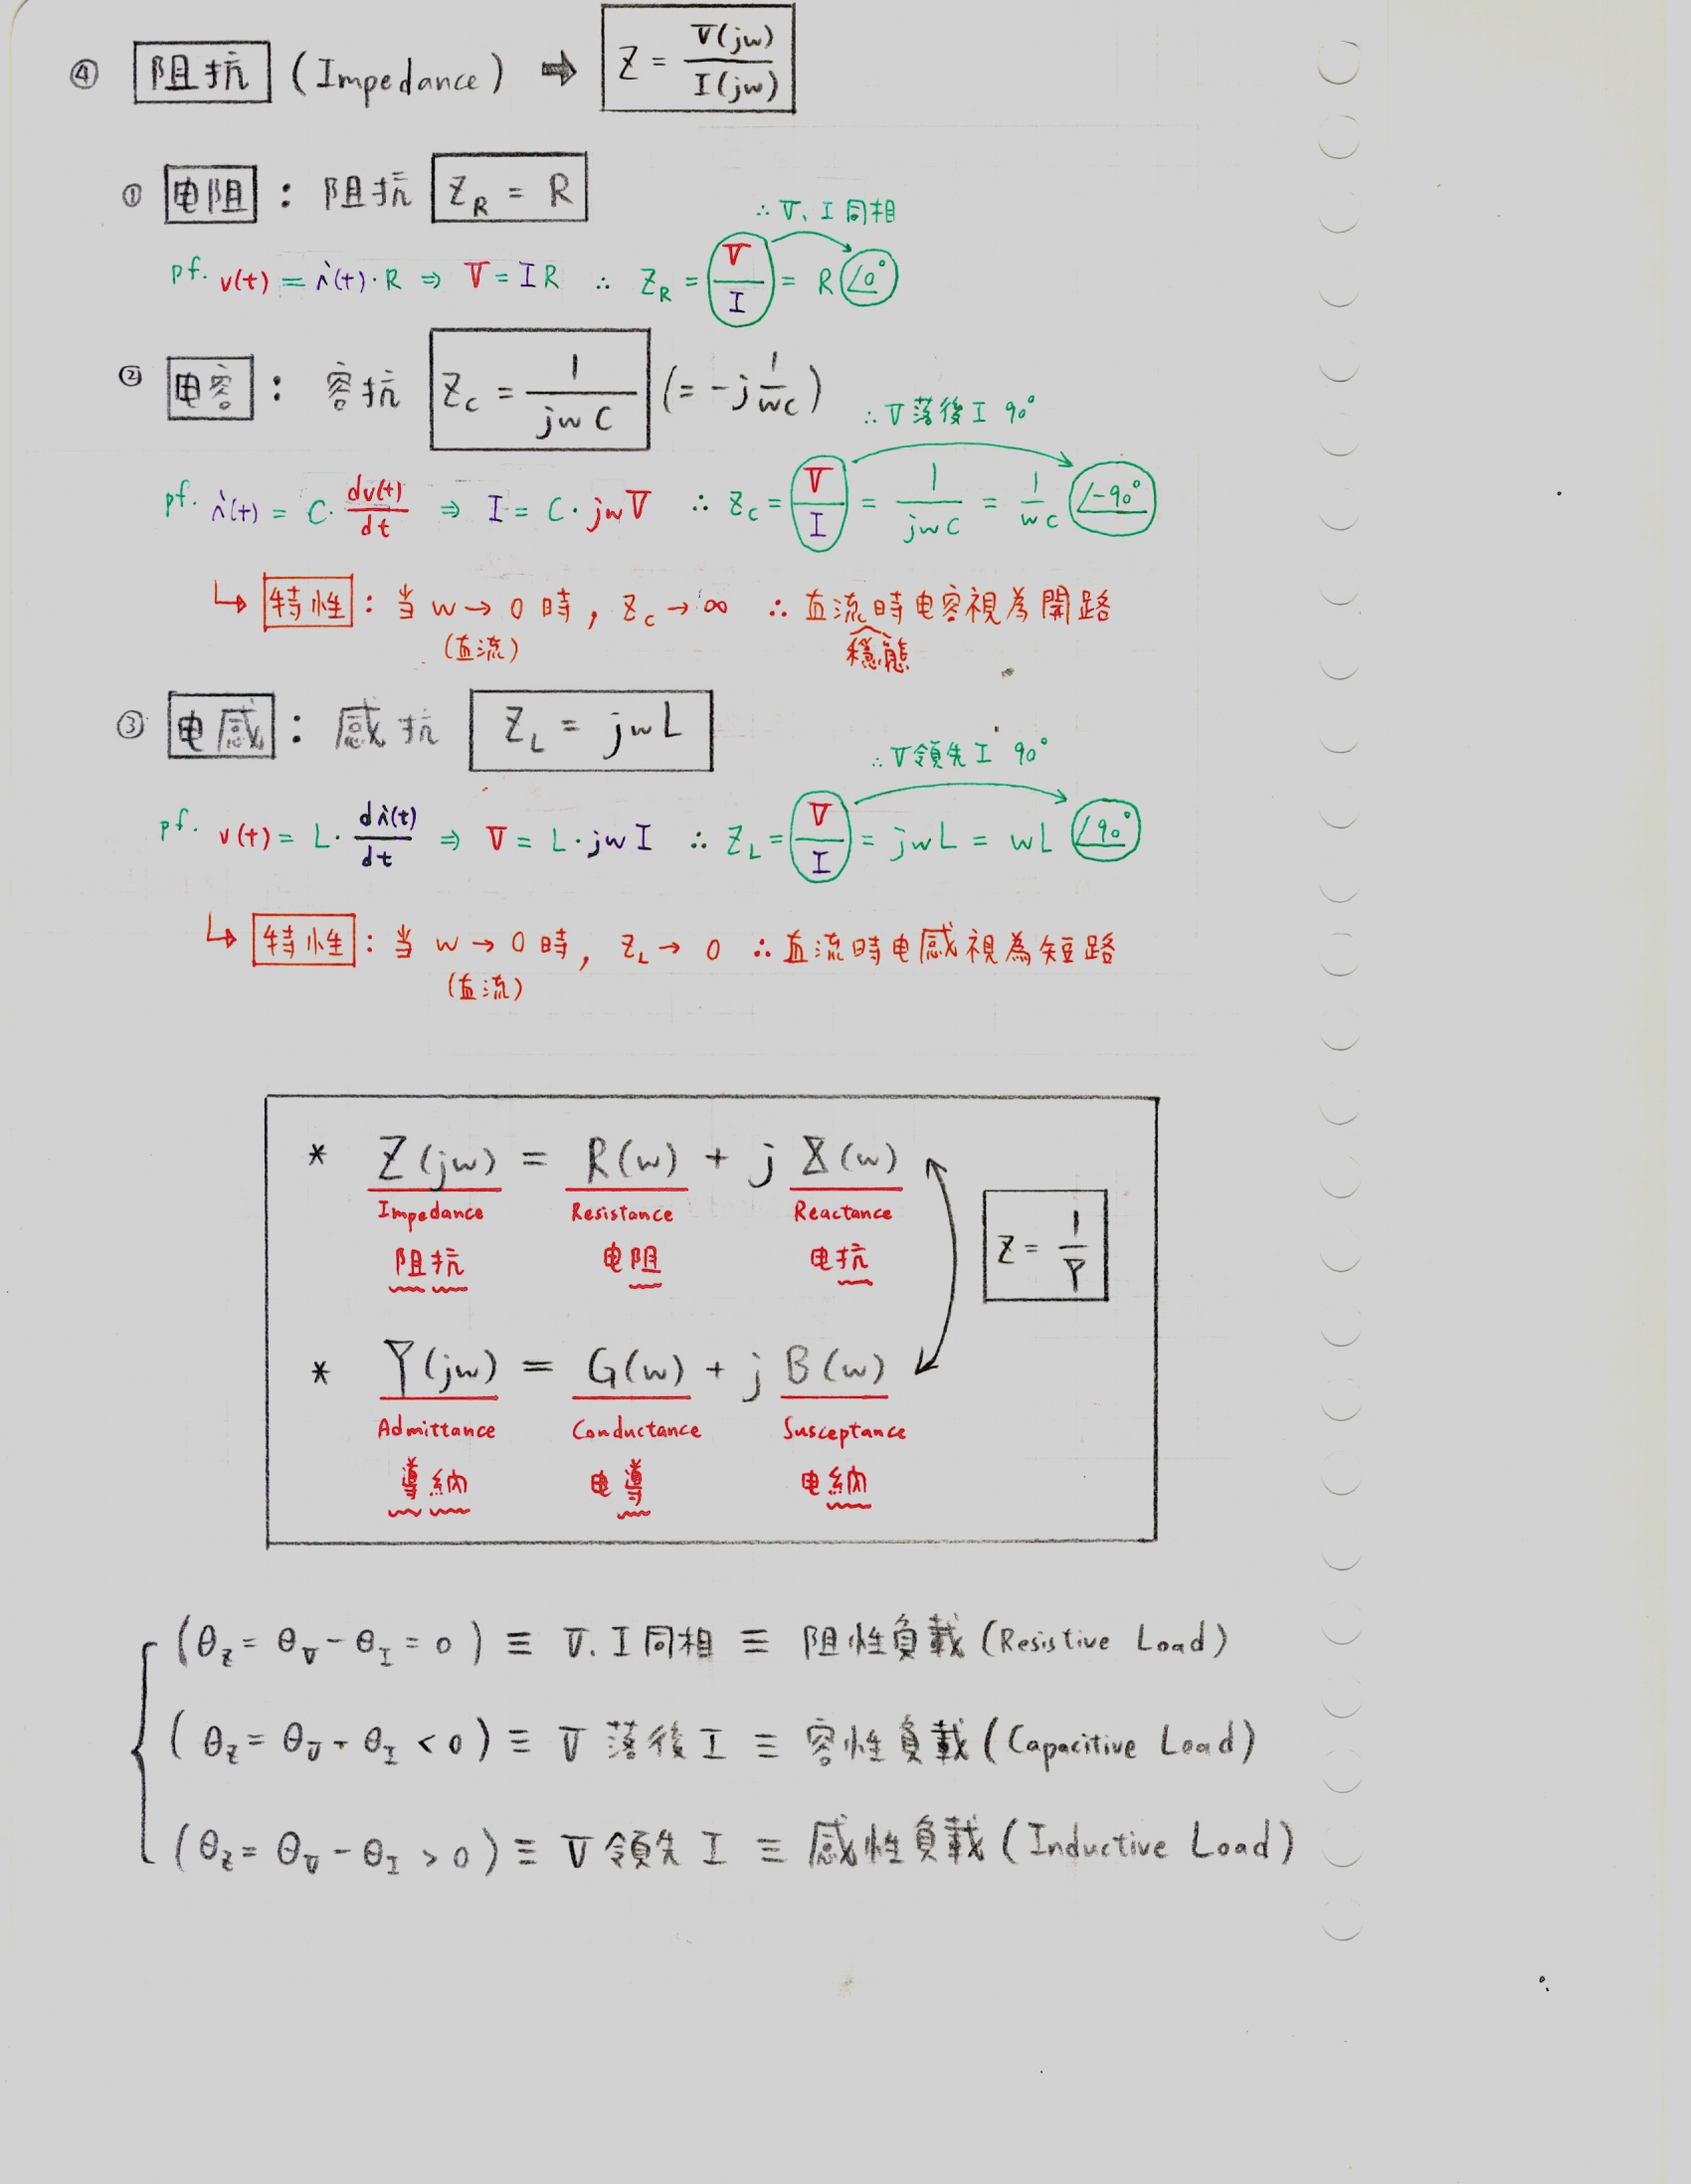 ④ 阻抗 (Impedance) ⇒ Z = V(jw) / I(jw)
① 电阻 : 阻抗 Z_R = R
∴ V、I 同相
pf. v(t) = i(t)·R ⇒ V = IR ∴ Z_R = V / I = R∠0°
② 电容 : 容抗 Z_C = 1 / jwC (= -j 1/wC)
∴ V 落後 I 90°
pf. i(t) = C· dv(t)/dt ⇒ I = C·jwV ∴ Z_C = V / I = 1 / jwC = 1/wC ∠-90°
↳ 特性 : 当 w → 0 時, Z_C → ∞ ∴ 直流時电容視為開路
(直流) 穩態
③ 电感 : 感抗 Z_L = jwL
∴ V 領先 I 90°
pf. v(t) = L· di(t)/dt ⇒ V = L·jwI ∴ Z_L = V / I = jwL = wL ∠90°
↳ 特性 : 当 w → 0 時, Z_L → 0 ∴ 直流時电感視為短路
(直流)
* Z(jw) = R(w) + j X(w)
Impedance Resistance Reactance
阻抗 电阻 电抗
Z = 1 / Y
* Y(jw) = G(w) + j B(w)
Admittance Conductance Susceptance
導納 电導 电納
(θ_Z = θ_V - θ_I = 0) ≡ V.I 同相 ≡ 阻性負載 (Resistive Load)
(θ_Z = θ_V - θ_I < 0) ≡ V 落後 I ≡ 容性負載 (Capacitive Load)
(θ_Z = θ_V - θ_I > 0) ≡ V 領先 I ≡ 感性負載 (Inductive Load)